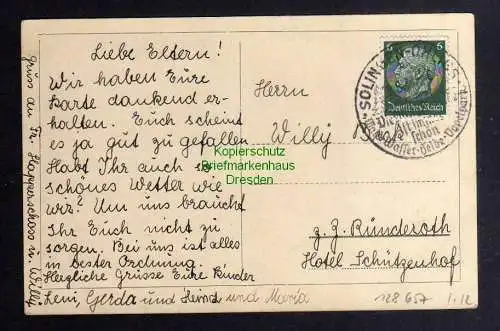 Liebe Eltern!
Wir haben Eure
Karte dankend er-
halten. Euch scheint
es ja gut zu gefallen
Habt Ihr auch so
schönes Wetter wie
wir? Um uns braucht
Ihr Euch nicht zu
sorgen. Bei uns ist alles
in bester Ordnung.
Herzliche Grüsse Eure Kinder
Leni, Gerda und und Maria
Gruss an Fr. u. Willy
Herrn
Willy
z. Z. Ründeroth
Hotel Schützenhof
5 5
Deutsches Reich
SOLINGEN
schön
Wasser-Heide
Kopierschutz
Briefmarkenhaus
Dresden
128657 1.12